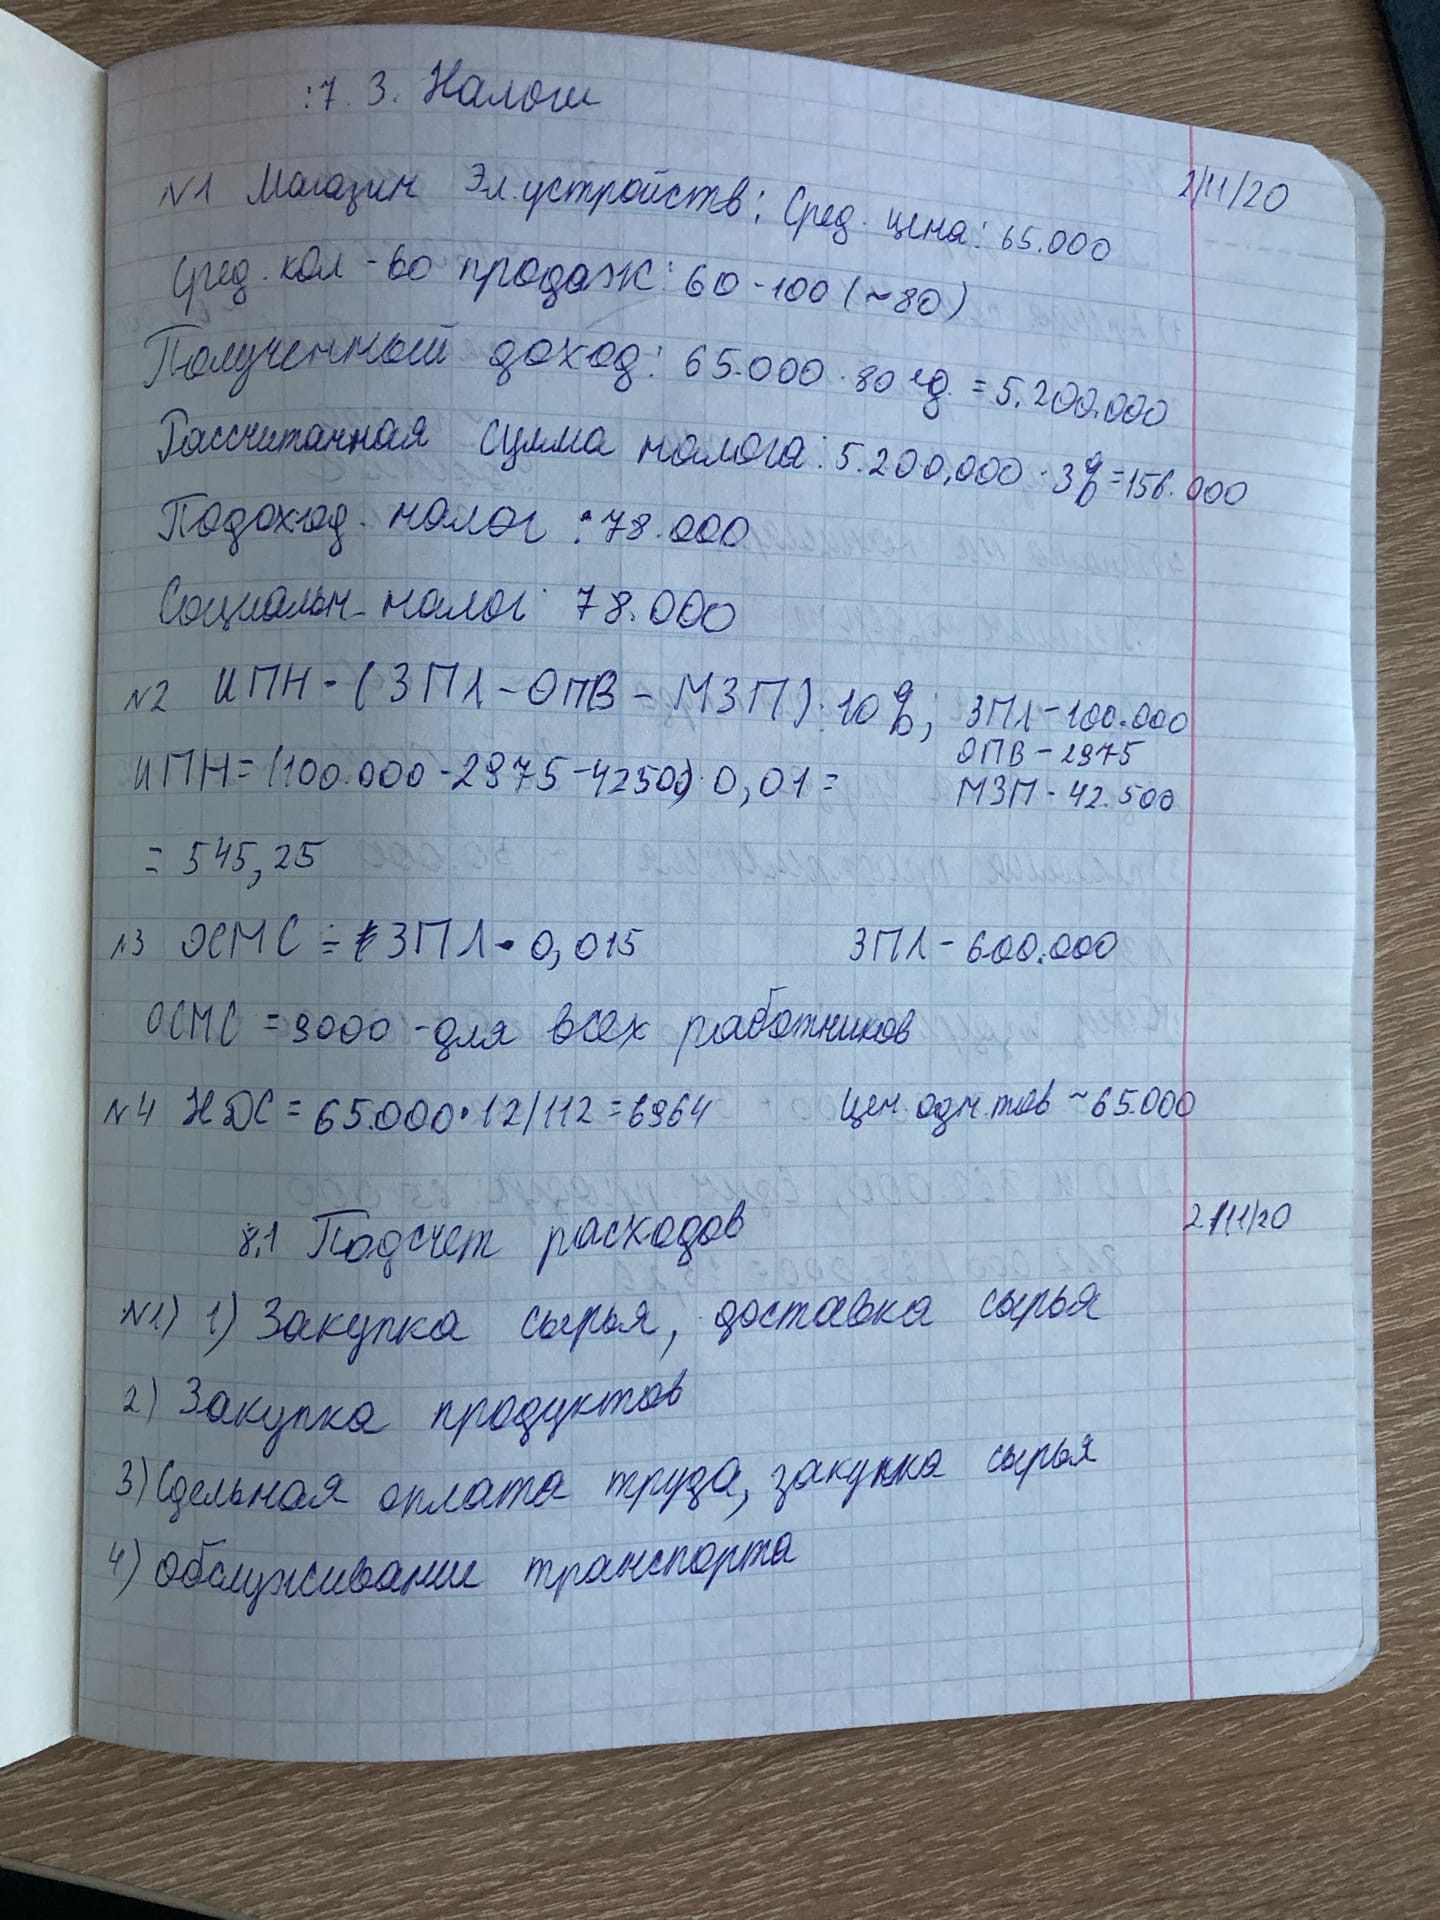 7.3. Налоги
2/11/20
N1 Магазин Эл.устройств; Сред. цена: 65.000
Сред. кол-во продаж: 60-100 (~80)
Полученный доход: 65.000 · 80 ед. = 5.200.000
Рассчитанная сумма налога: 5.200.000 · 3% = 156.000
Подоход. налог: 78.000
Социальн. налог: 78.000
N2 ИПН - (ЗПЛ - ОПВ - МЗП) · 10%; ЗПЛ - 100.000
ОПВ - 2975
ИПН = (100.000 - 2975 - 42500) · 0,01 =
МЗП - 42.500
= 545,25
N3 ОСМС = ЗПЛ · 0,015 ЗПЛ - 600.000
ОСМС = 9000 - для всех работников
N4 НДС = 65.000 · 12/112 = 6964 Цен. одн. тов ~ 65.000
8.1 Подсчет расходов 2/11/20
N1) 1) Закупка сырья, доставка сырья
2) Закупка продуктов
3) Сдельная оплата труда, закупка сырья
4) обслуживание транспорта